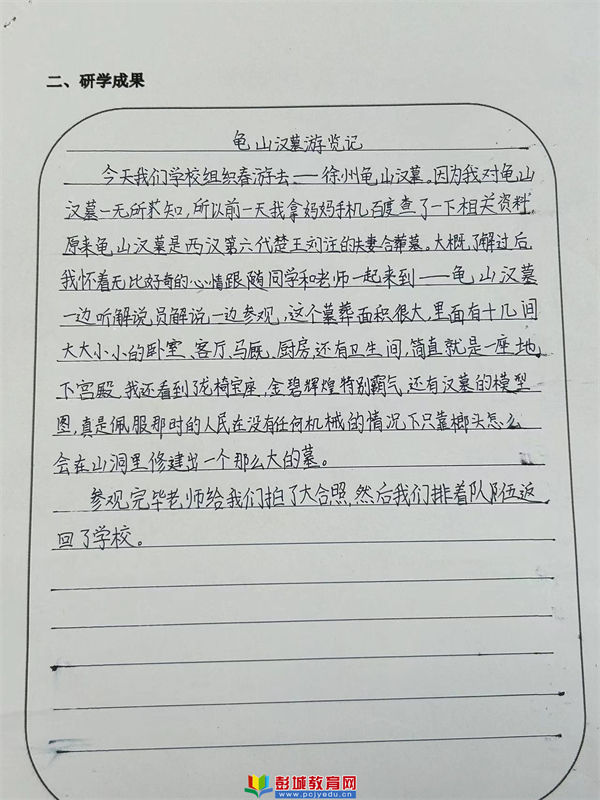 二、研学成果
龟山汉墓游览记
今天我们学校组织春游去——徐州龟山汉墓。因为我对龟山
汉墓一无所获知,所以前一天我拿妈妈手机百度查了一下相关资料,
原来龟山汉墓是西汉第六代楚王刘注的夫妻合葬墓。大概了解过后,
我怀着无比好奇的心情跟随同学和老师一起来到——龟山汉墓
一边听解说员解说一边参观,这个墓葬面积很大,里面有十几间
大大小小的卧室、客厅、马厩、厨房,还有卫生间,简直就是一座地
下宫殿,我还看到了龙椅宝座,金碧辉煌特别霸气,还有汉墓的模型
图,真是佩服那时的人民在没有任何机械的情况下只靠榔头怎么
会在山洞里修建出一个那么大的墓。
参观完毕老师给我们拍了大合照,然后我们排着队队伍返
回了学校。
彭城教育网
www.pcjyedu.cn